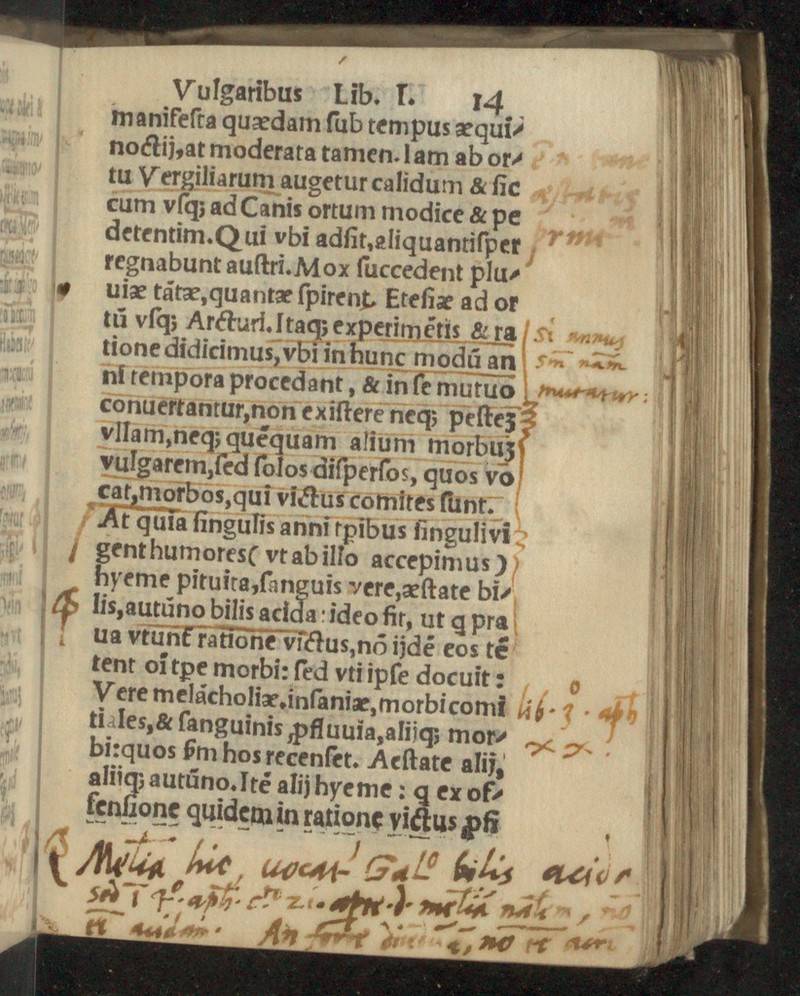 Vulgaribus Lib. I. 14
manifesta quædam sub tempus æqui⸗
noctij,at moderata tamen. Iam ab or⸗
tu Vergiliarum augetur calidum & sic
cum vsq; ad Canis ortum modice & pe
detentim. Qui vbi adsit,aliquantisper
regnabunt austri. Mox succedent plu⸗
uiæ tãtæ,quantæ spirent. Etesiæ ad or
tũ vsq; Arcturi. Itaq; experimẽtis & ra
si annus
tione didicimus,vbi in hunc modũ an
nam
ni tempora procedant, & in se mutuo
mutatur:
conuertantur,non existere neq; pesteꝫ
vllam,neq; quẽquam alium morbuꝫ
vulgarem,sed solos dispersos, quos vo
cat,morbos,qui victus comites sunt.
At quia singulis anni tp̃ibus singuli vi
gent humores( vt ab illo accepimus )
hyeme pituita,sanguis vere,æstate bi⸗
lis,autũno bilis acida: ideo fit, ut q pra
ua vtunt̃ ratione victus,nõ ijdẽ eos tẽ
tent oĩ tp̃e morbi: sed vti ipse docuit:
Vere melãcholiæ,insaniæ,morbi comi
lib. 3. aph
tiales,& sanguinis ꝓfluuia,alijq; mor⸗
bi:quos ẜm hos recenset. Aestate alij,
alijq; autũno. Itẽ alij hyeme : q ex of⸗
fensione quidem in ratione victus ꝓfi
hic, uocat Gal° bilis acidA
aph.
An forte